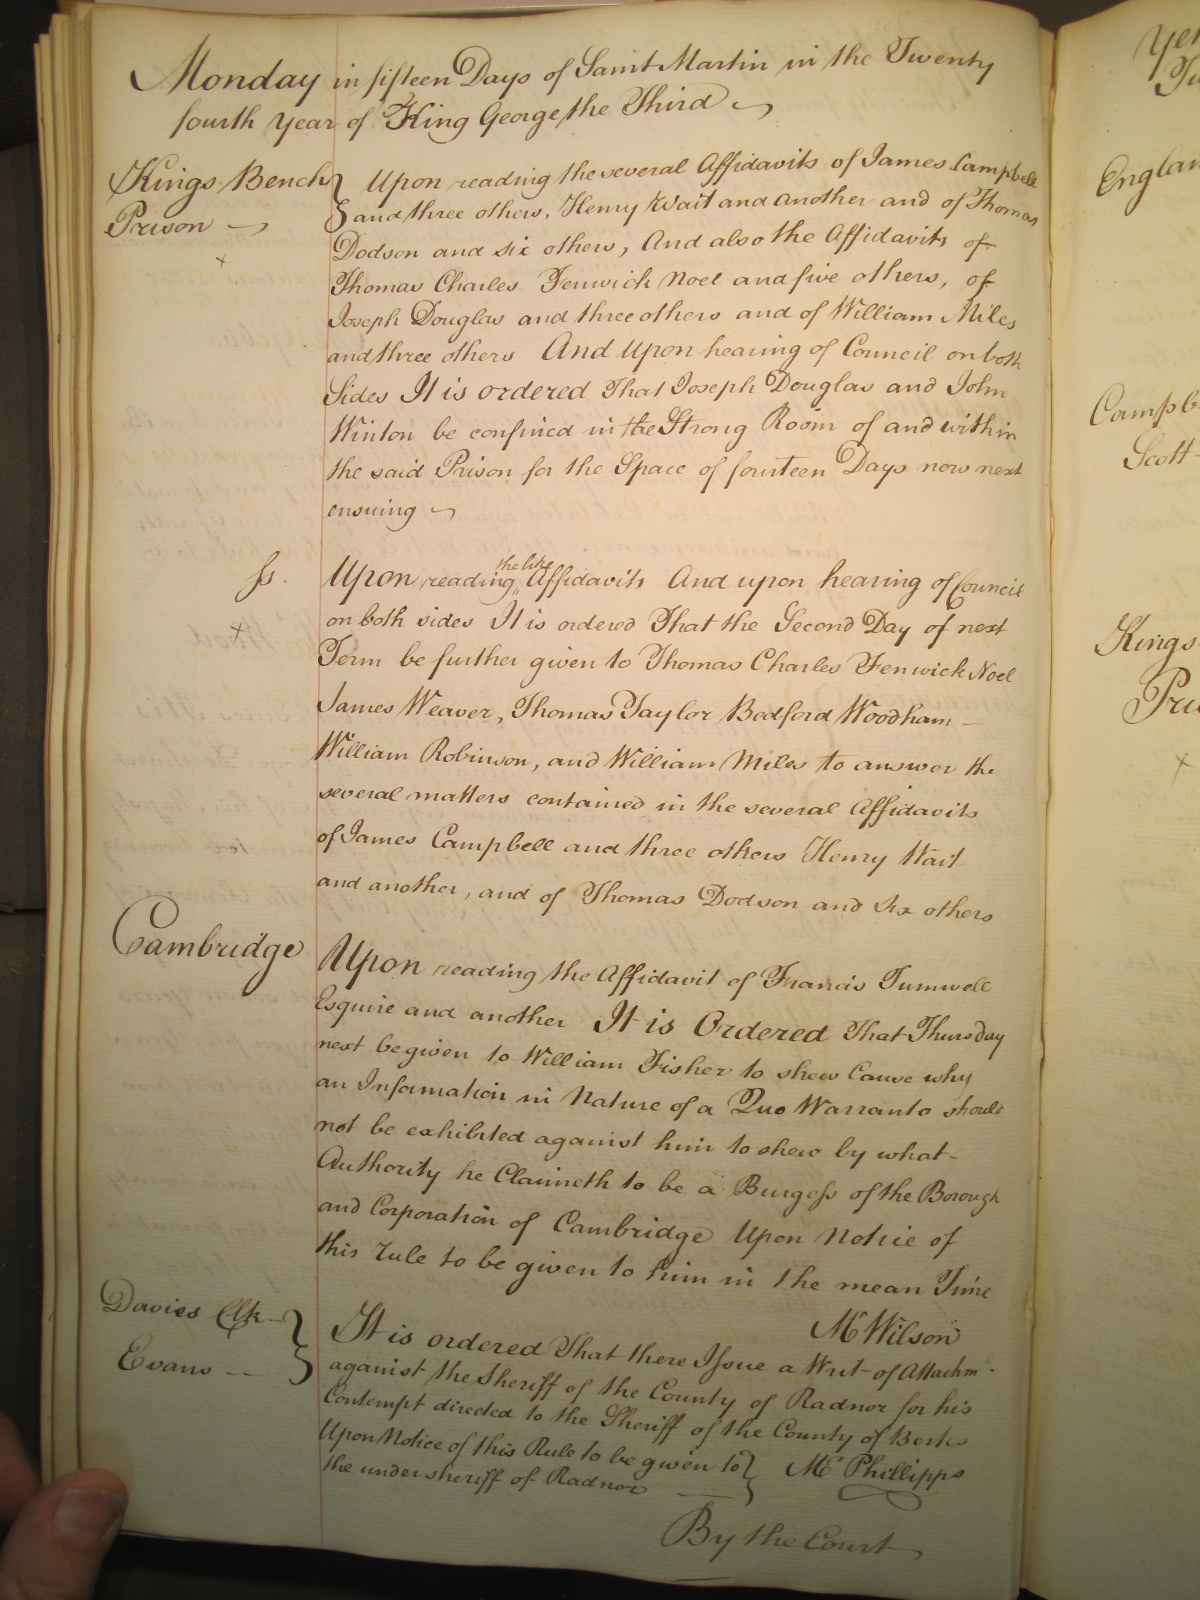 Monday in fifteen Days of Saint Martin in the Twenty
fourth Year of King George the Third
Kings Bench
Prison
Upon reading the several Affidavits of James Campbell
and three others, Henry Wait and another and of Thomas
Dodson and six others, And also the Affidavits of
Thomas Charles Fenwick Noel and five others, of
Joseph Douglas and three others and of William Miles
and three others And Upon hearing of Council on both
Sides It is ordered That Joseph Douglas and John
Winton be confined in the Strong Room of and within
the said Prison for the Space of fourteen Days now next
ensuing
ss.
Upon reading the like Affidavits And upon hearing of Council
on both sides It is ordered That the Second Day of next
Term be further given to Thomas Charles Fenwick Noel
James Weaver, Thomas Taylor Bedford Woodham
William Robinson, and William Miles to answer the
several matters contained in the several Affidavits
of James Campbell and three others Henry Wait
and another, and of Thomas Dodson and Six others
Cambridge
Upon reading the Affidavit of Francis Tunwell
Esquire and another It is Ordered That Thursday
next be given to William Fisher to shew Cause why
an Information in Nature of a Quo Warranto should
not be exhibited against him to shew by what
Authority he Claimeth to be a Burgess of the Borough
and Corporation of Cambridge Upon Notice of
this rule to be given to him in the mean Time
Mr Wilson
Davies Clk
Evans
It is ordered That there Issue a Writ of Attachmt
against the Sheriff of the County of Radnor for his
Contempt directed to the Sheriff of the County of Berks
Upon Notice of this Rule to be given to
the undersheriff of Radnor
Mr Phillipps
By the Court
Englan
Campb
Scott
Kings
Pri